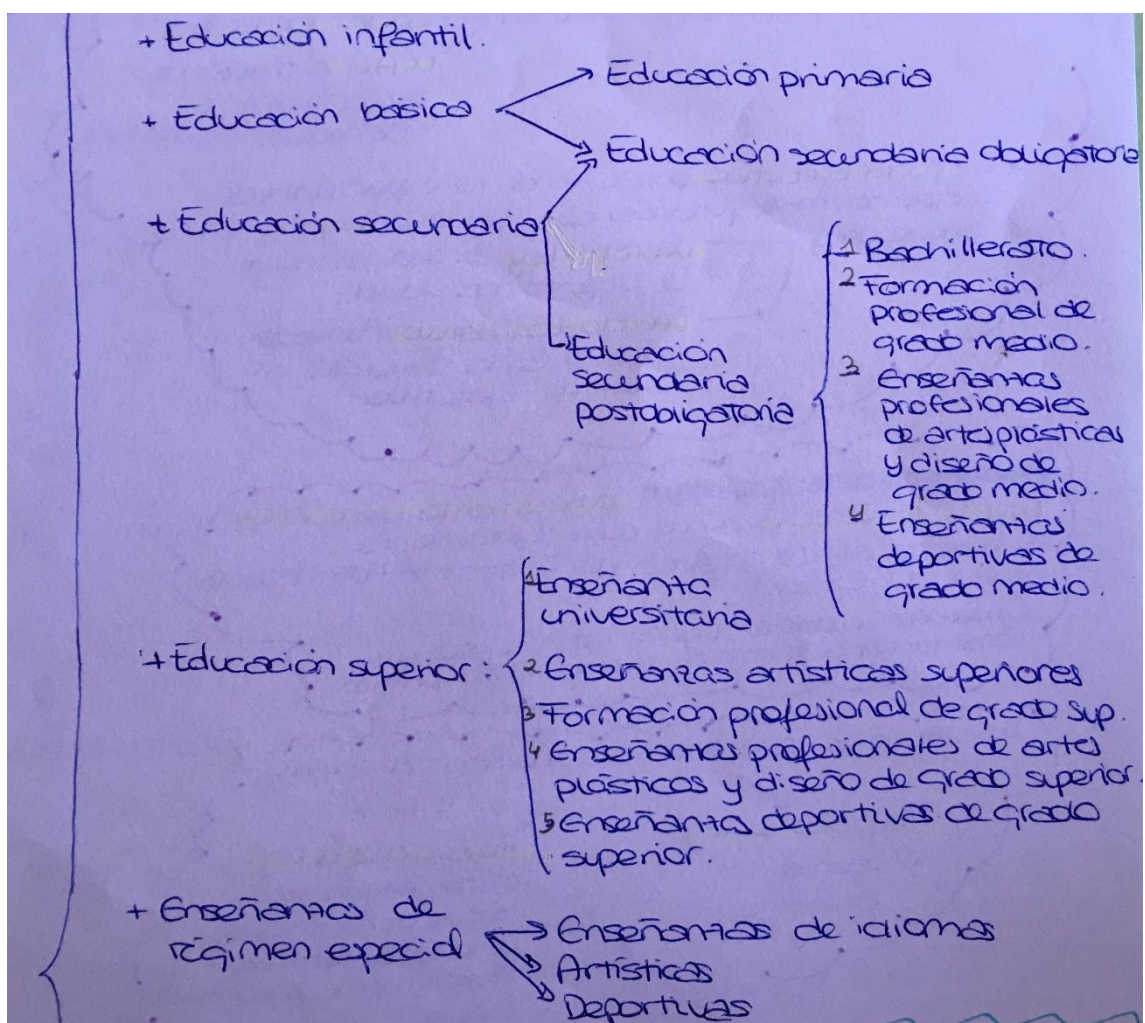 + Educación infantil.
+ Educación básica
Educación primaria
Educación secundaria obligatoria
+ Educación secundaria
Educación
secundaria
postobligatoria
1 Bachillerato.
2 Formación
profesional de
grado medio.
3 Enseñanzas
profesionales
de artes plásticas
y diseño de
grado medio.
4 Enseñanzas
deportivas de
grado medio.
+ Educación superior:
1 Enseñanza
universitaria
2 Enseñanzas artísticas superiores
3 Formación profesional de grado sup.
4 Enseñanzas profesionales de artes
plásticas y diseño de grado superior.
5 Enseñanzas deportivas de grado
superior.
+ Enseñanzas de
régimen especial
Enseñanzas de idiomas
Artísticas
Deportivas